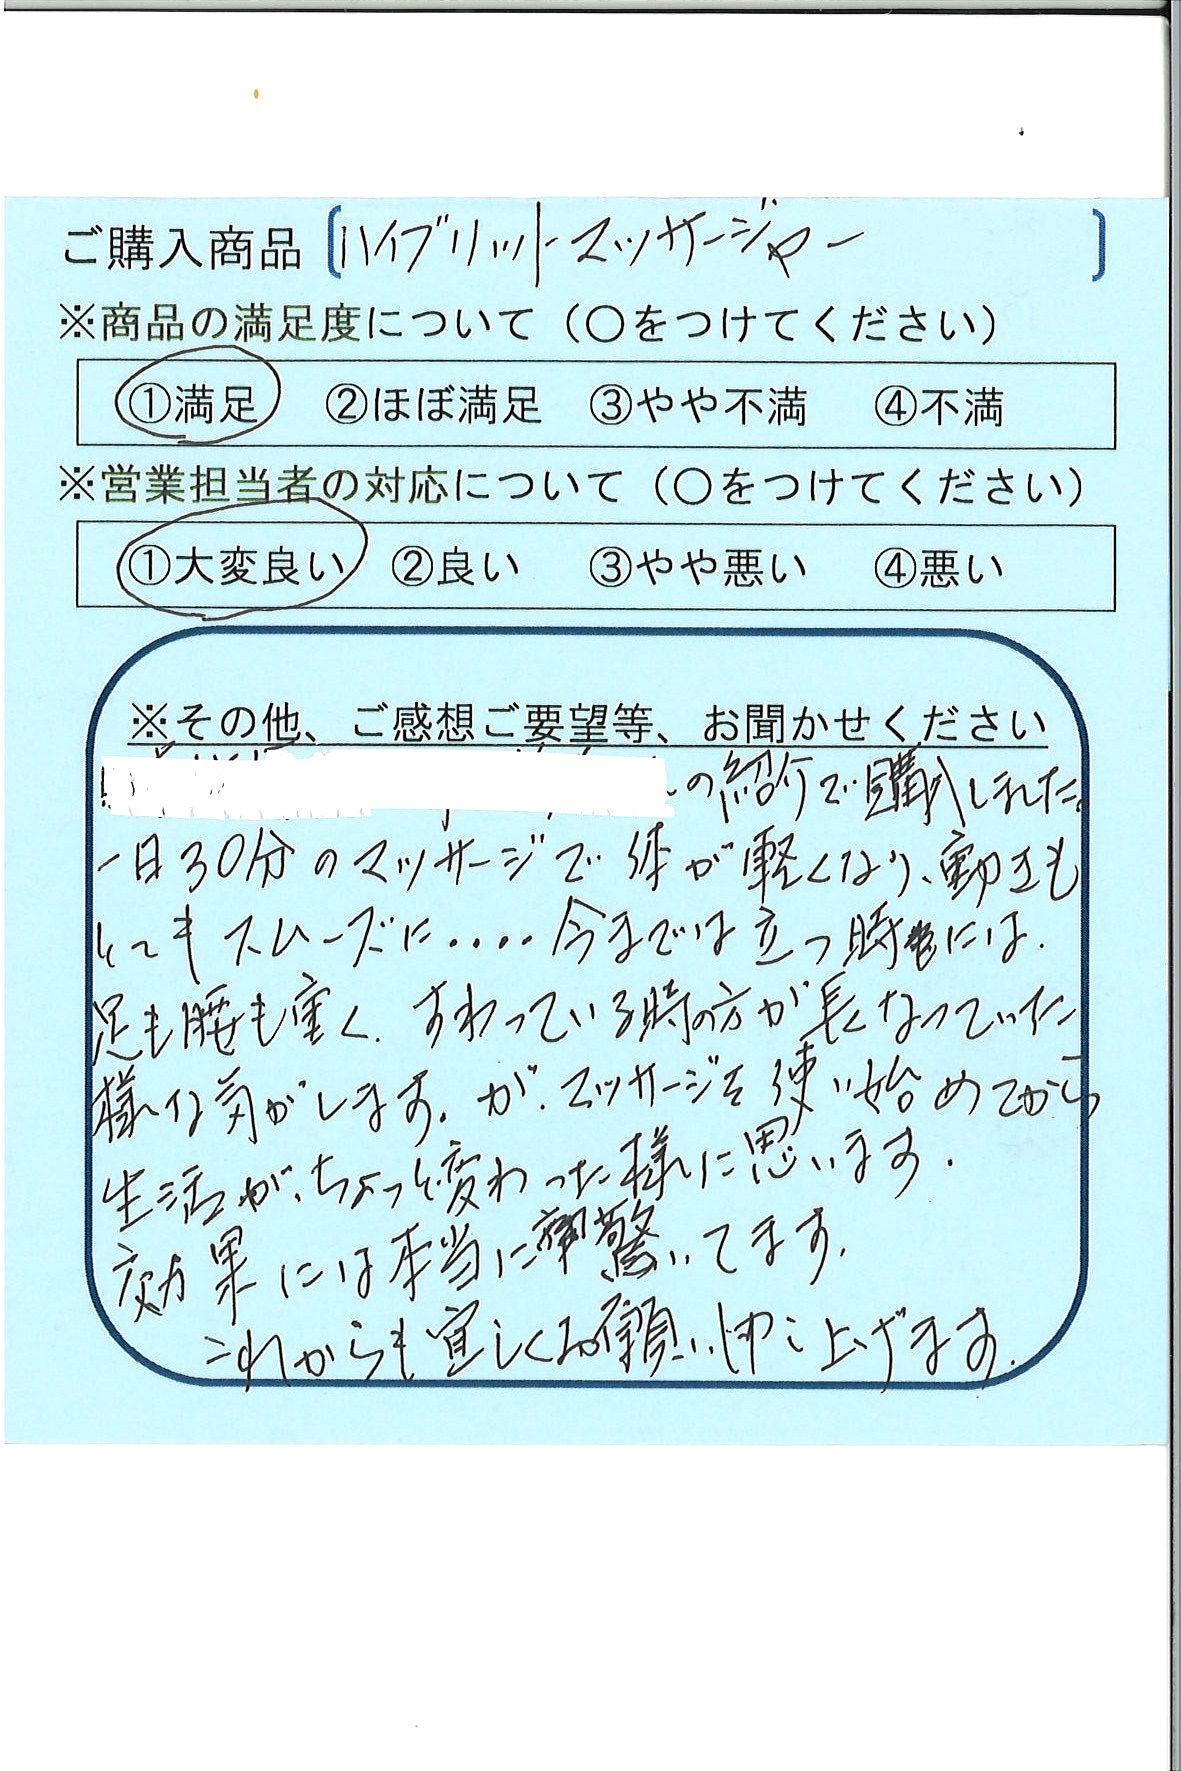 ご購入商品 [ハイブリットマッサージャー]
※商品の満足度について（○をつけてください）
①満足 ②ほぼ満足 ③やや不満 ④不満
※営業担当者の対応について（○をつけてください）
①大変良い ②良い ③やや悪い ④悪い
※その他、ご感想ご要望等、お聞かせください
の紹介で購入しました。
一日30分のマッサージで体が軽くなり、動きも
とてもスムーズに....今までは立つ時には.
足も腰も重く.すわっている時の方が長くなっていた
様な気がします.が.マッサージを使い始めてから
生活が、ちょっと変わった様に思います.
効果には本当に驚いてます.
これからも宜しくお願い申し上げます.